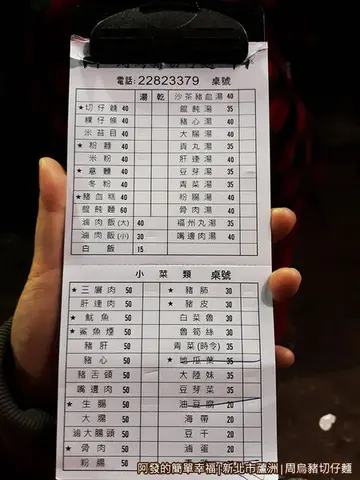 電話: 22823379 桌號
湯 乾
★切仔麵 40
粿仔條 40
米苔目 40
★粉麵 40
米粉 40
★意麵 40
冬粉 40
★豬血糕 40
餛飩麵 60
滷肉飯(大) 40
滷肉飯(小) 30
白飯 15
沙茶豬血湯 40
餛飩湯 35
豬心湯 40
大腸湯 40
貢丸湯 35
肝連湯 40
豆芽湯 35
青菜湯 35
粉腸湯 40
骨肉湯 40
福州丸湯 35
嘴邊肉湯 40
小菜類 桌號
★三層肉 50
肝連肉 50
★魷魚 50
★鯊魚煙 50
豬肝 50
豬心 50
豬舌頭 50
嘴邊肉 50
★生腸 50
大腸 50
滷大腸頭 50
★骨肉 50
粉腸 50
★豬肺 30
★豬皮 30
白菜魯 30
魯筍絲 30
青菜(時令) 35
★地瓜葉 35
大陸妹 35
豆芽菜 35
油豆腐 20
海帶 20
豆干 20
滷蛋 20
阿發的簡單幸福|新北市蘆洲|周烏豬切仔麵